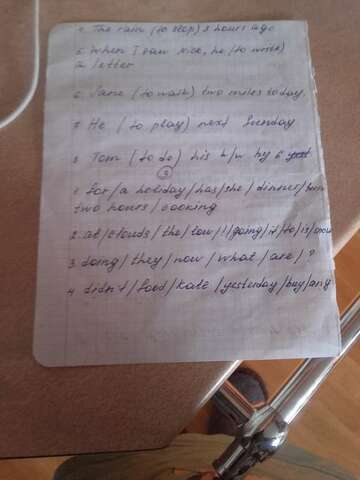 4. The rain (to stop) 3 hours ago
5. When I saw Nick, he (to write)
a letter
6. Jane (to walk) two miles today.
7. He (to play) next Sunday
8 Tom (to do) his h/w by 6
3
1. for/a holiday/has/she/dinner/been
two hours/cooking
2. at/clouds/the/low/!/going/it/to/is/snow
3 doing/they/now/what/are/?
4 didn't/food/Kate/yesterday/buy/any